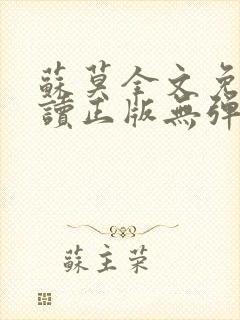 蘇莫全文免
讀正版無彈
蘇主荣